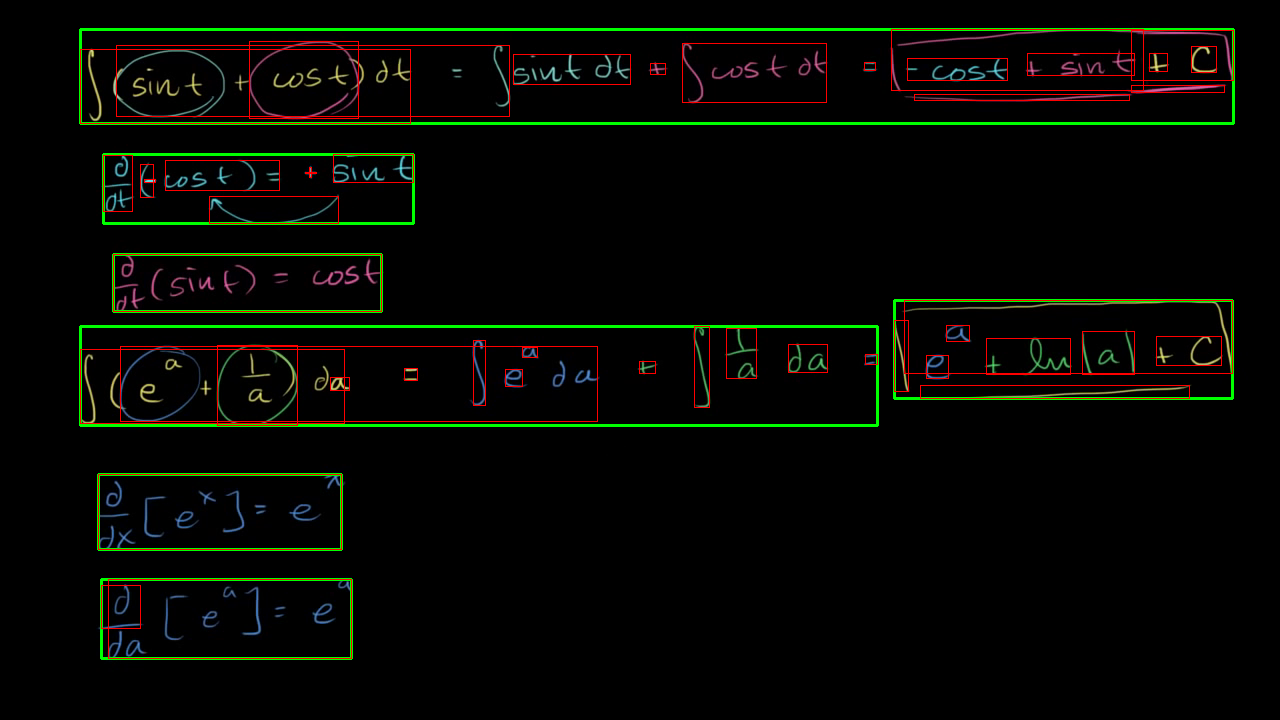 ∫(sin t + cos t) dt = ∫ sin t dt + ∫ cos t dt = -cos t + sin t + C
d/dt (-cos t) = + sin t
d/dt (sin t) = cos t
∫(e^a + 1/a) da = ∫ e^a da + ∫ 1/a da = e^a + ln|a| + C
d/dx [e^x] = e^x
d/da [e^a] = e^a